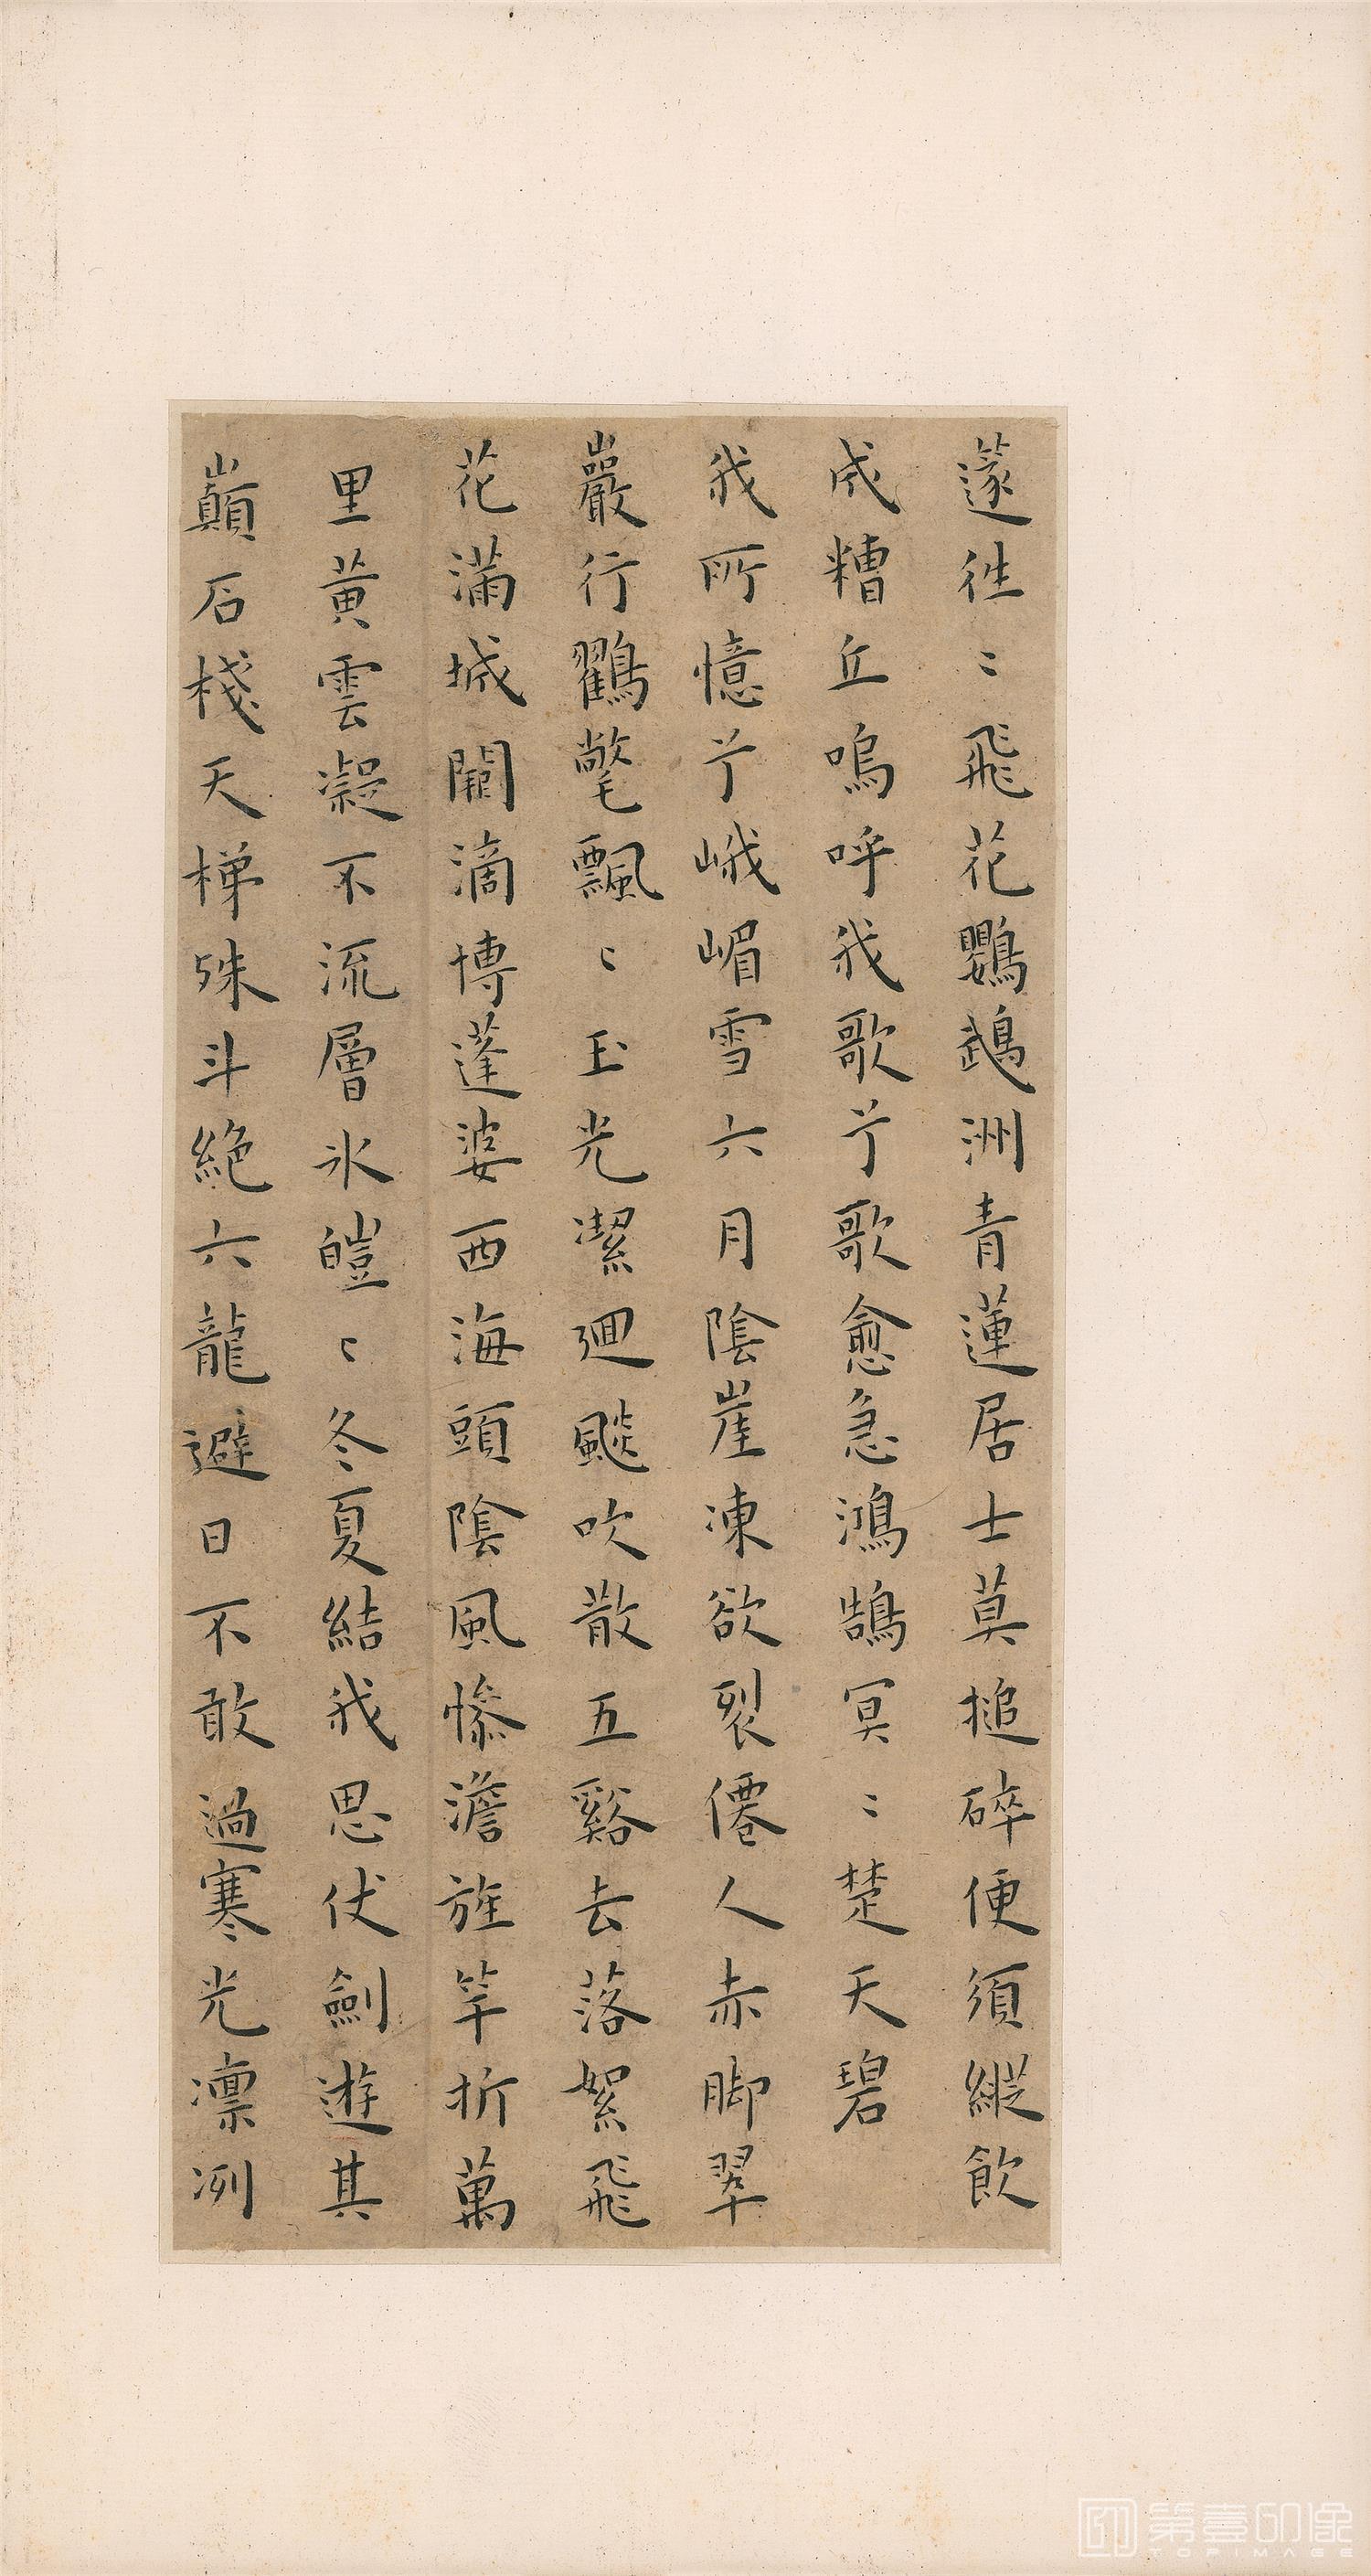 蓫徃〻飛花鸚鵡洲青蓮居士莫搥碎便須縱飲
成糟丘嗚呼我歌兮歌愈急鴻鵠冥〻楚天碧
我所憶兮峨嵋雪六月陰崖凍欲裂僊人赤脚翠
巖行鸛氅飄〻玉光潔廻颷吹散五谿去落絮飛
花滿城闕滴博蓬婆西海頭陰風慘澹旌竿折萬
里黃雲凝不流層冰皚〻冬夏結我思仗劍遊其
巔石棧天梯殊斗絕六龍避日不敢過寒光凛冽
第壹印像
TOPIMAGE